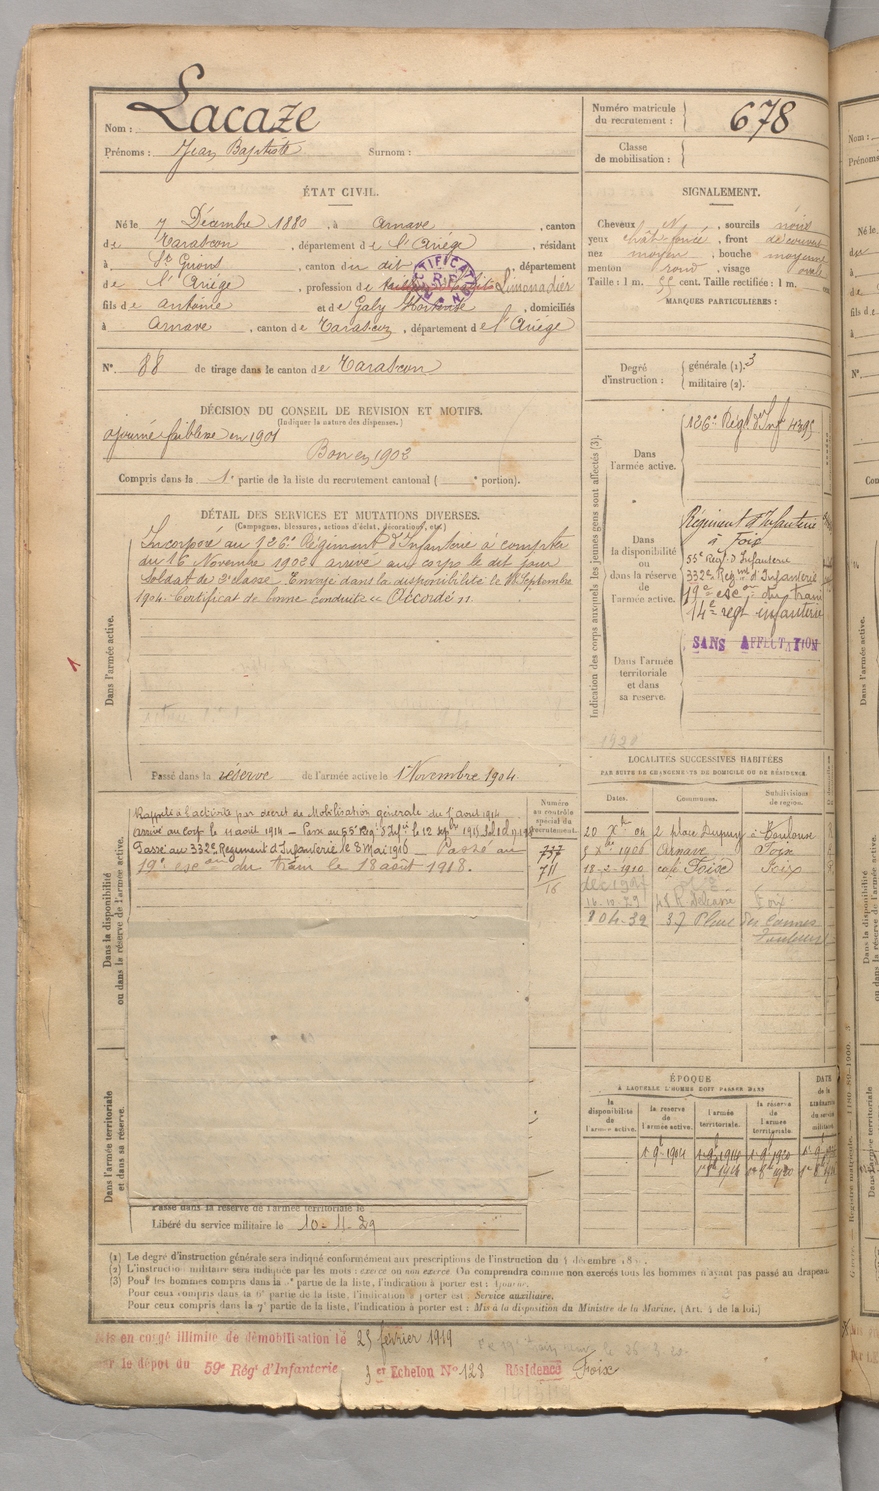 Nom : Lacaze
Prénoms : Jean Baptiste Surnom :
Numéro matricule du recrutement : 678
Classe de mobilisation :
ÉTAT CIVIL.
Né le 7 Décembre 1880, à Arnave, canton
de Tarascon, département de l'Ariège, résidant
à St Girons, canton du dit, département
de l'Ariège, profession de Limonadier
fils de Antoine et de Galy Hortense, domiciliés
à Arnave, canton de Tarascon, département de l'Ariège
N° 88 de tirage dans le canton de Tarascon
SIGNALEMENT.
Cheveux N, sourcils noirs
yeux chât. foncé, front découvert
nez moyen, bouche moyenne
menton rond, visage ovale
Taille : 1 m. 55 cent. Taille rectifiée : 1 m. cent.
MARQUES PARTICULIÈRES :
Degré d'instruction : générale (1). 3
militaire (2).
DÉCISION DU CONSEIL DE REVISION ET MOTIFS.
(Indiquer la nature des dispenses.)
ajourné faiblesse en 1901
Bon en 1902
Compris dans la 1e partie de la liste du recrutement cantonal ( e portion).
DÉTAIL DES SERVICES ET MUTATIONS DIVERSES.
(Campagnes, blessures, actions d'éclat, décorations, etc.)
Dans l'armée active.
Incorporé au 126e Régiment d'Infanterie à compter
du 16 Novembre 1902 arrivé au corps le dit jour
Soldat de 2e classe. Envoyé dans la disponibilité le Septembre
1904. Certificat de bonne conduite "Accordé".
Passé dans la réserve de l'armée active le 1 Novembre 1904
Indication des corps auxquels les jeunes gens sont affectés (3).
Dans l'armée active.
126e Régt d'Inf 4395
Dans la disponibilité ou dans la réserve de l'armée active.
Régiment d'Infanterie
à Foix
55e Régt d'Infanterie
332e Régmt d'Infanterie
19e escon du train
14e regt infanterie
SANS AFFECTATION
Dans l'armée territoriale et dans sa réserve.
Dans la disponibilité ou dans la réserve de l'armée active.
Rappelé à l'activité par décret de Mobilisation générale du 1 août 1914
arrivé au corps le 11 août 1914 – Passé au 55e Régt d'Infie le 12 1915
Passé au 332e Régiment d'Infanterie le 3 Mai 1916 – Passé au
19e escon du train le 18 août 1918.
Numéro au contrôle spécial du recrutement.
737
711
16
LOCALITÉS SUCCESSIVES HABITÉES
PAR SUITE DE CHANGEMENTS DE DOMICILE OU DE RÉSIDENCE.
Dates. Communes. Subdivisions de région.
20 Xbre 04 2 place Dupuy à Toulouse
5 Xbre 1906 Arnave Foix
18-2-1910 café Foix Foix
16.10.29 Delcassé Foix
37 Place des Carmes
Toulouse
ÉPOQUE
À LAQUELLE L'HOMME DOIT PASSER DANS
la disponibilité de l'armée active. la réserve de l'armée active. l'armée territoriale. la réserve de l'armée territoriale.
DATE de la LIBÉRATION du service militaire.
1 9bre 1904 1 9bre 1914 1 9bre 1920
Dans l'armée territoriale et dans sa réserve.
Passé dans la réserve de l'armée territoriale le
Libéré du service militaire le 10-4-29
(1) Le degré d'instruction générale sera indiqué conformément aux prescriptions de l'instruction du décembre
(2) L'instruction militaire sera indiquée par les mots : exercé ou non exercé. On comprendra comme non exercés tous les hommes n'ayant pas passé au drapeau.
(3) Pour les hommes compris dans la partie de la liste, l'indication à porter est :
Pour ceux compris dans la 6e partie de la liste, l'indication à porter est : Service auxiliaire.
Pour ceux compris dans la 7e partie de la liste, l'indication à porter est : Mis à la disposition du Ministre de la Marine. (Art. 4 de la loi.)
Mis en congé illimité de démobilisation le 25 février 1919
par le dépôt du 59e Régt d'Infanterie 3 er Echelon N° 128 Résidence Foix